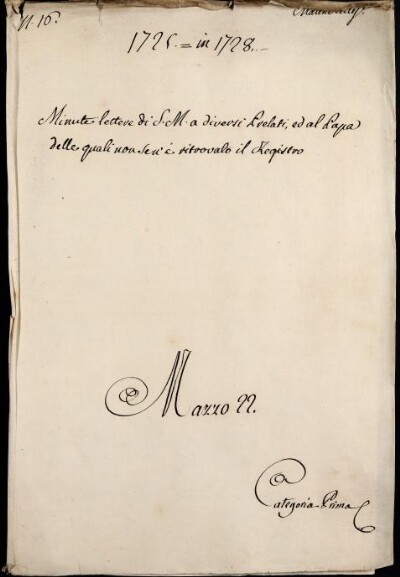 N. 16.
1725. = in 1728.
Minute lettere di S. M. a diversi Prelati, ed al Papa
delle quali non se n'è ritrovato il Registro
Mazzo 22.
Categoria Prima